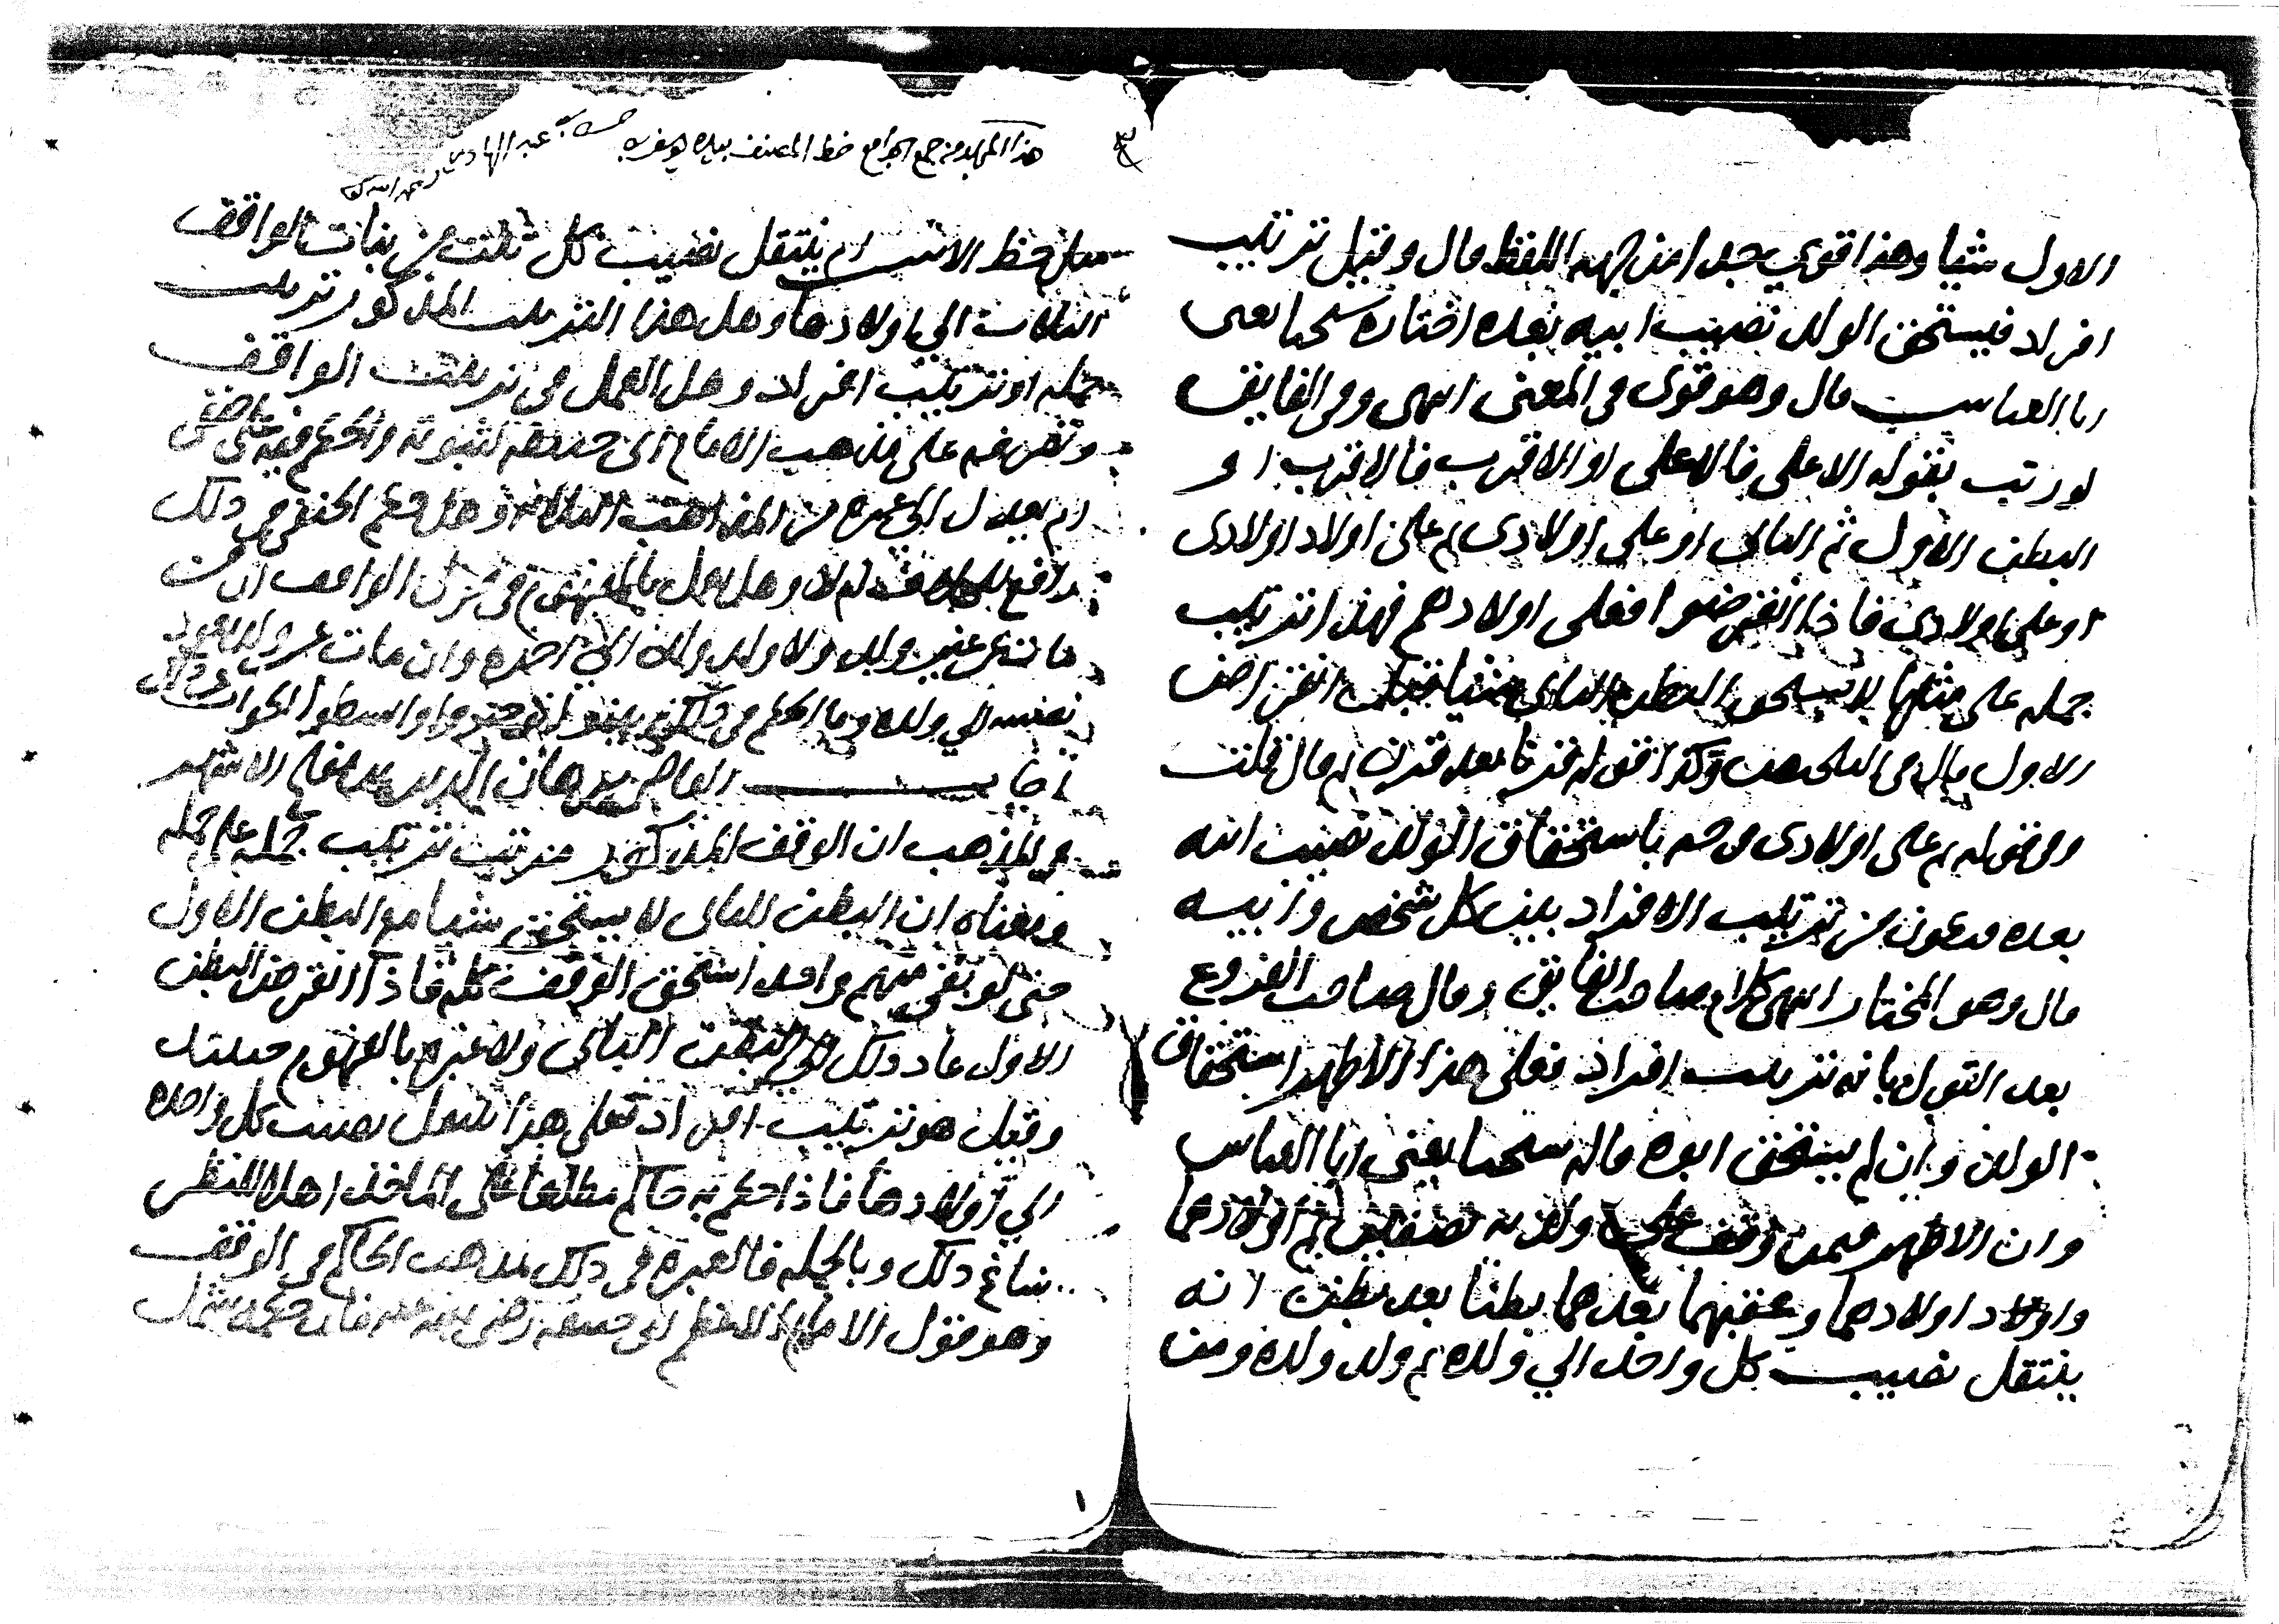 الاول شيئا وهذا اقوي جدا من جهه اللفظ قال وقيل ترتيب
افراد فيستحق الولد نصيب ابيه بعده اختاره شيخنا يعنى
ابا العباس قال وهو قوى فى المعنى انتهى وفى الفايق
لو رتب بقوله الاعلى فالاعلى او الاقرب فالاقرب او
البطن الاول ثم الثانى او على اولادى ثم على اولاد اولادى
او على اولادى فاذا انقرضوا فعلى اولادهم فهذا ترتيب
جمله على مثلها لا يستحق البطن الثانى شيئا قبل انقراض
الاول قاله فى التلخيص وكذا قوله قرنا بعد قرن ثم قال قلت
وفى قوله ثم على اولادى باستحقاق الولد نصيب ابيه
بعده فيكون من ترتيب الافراد بين كل شخص وابيه
قال وهو المختار انتهى كلام صاحب الفايق وقال صاحب الفروع
بعد القول بانه ترتيب افراد فعلى هذا الاظهر استحقاق
الولد وان لم يستحق ابوه قاله شيخنا يعنى ابا العباس
وان الاظهر فيمن وقف على ولديه نصفين ثم اولادهما
واولاد اولادهما وعقبهما بعدهما بطنا بعد بطن انه
ينتقل نصيب كل واحد الي ولده ثم ولد ولده ومن
هذا المجلد من جمع الجوامع خط المصنف بيده يوسف بن حسن بن عبد الهادى رحمه الله
حظ الانثيين ام ينتقل نصيب كل ثلث من بنات الواقف
الثلاث الي اولادها وهل هذا الترتيب المذكور ترتيب
جمله او ترتيب افراد وهل العمل فى ترتيب الواقف
على مذهب الامام ابى حنيفه لثبوته والحكم فيه على
ام يعدل الى غيره من المذاهب الثلاثه وهل حكم الحنفى فى ذلك
رافع للخلاف ام لا وهل يعمل بالمفهوم فى قول الواقف ان من
مات عن غير ولد ولا ولد ولد الى اخره وان مات عن ولد يعود
نصيبه الي ولده وما الحكم فى ذلك
اجاب القاضى برهان الدين بن مفلح الاشهر
فى المذهب ان الوقف المذكور مرتب ترتيب جمله على جمله
ومعناه ان البطن الثانى لا يستحق شيئا مع البطن الاول
حتى لو بقى منهم واحد استحق الوقف كله فاذا انقرض البطن
الاول عاد ذلك الثانى ولا عبره بالمفهوم حينئذ
وقيل هو ترتيب افراد فعلى هذا ينتقل نصيب كل واحده
الي اولادها فاذا حكم به حاكم مطلعا على الماخذ اهلا للنظر
ساغ ذلك وبالجمله فالعبره فى ذلك بمذهب الحاكم فى الوقف
وهو قول الامام الاعظم ابى حنيفه رضى الله عنه